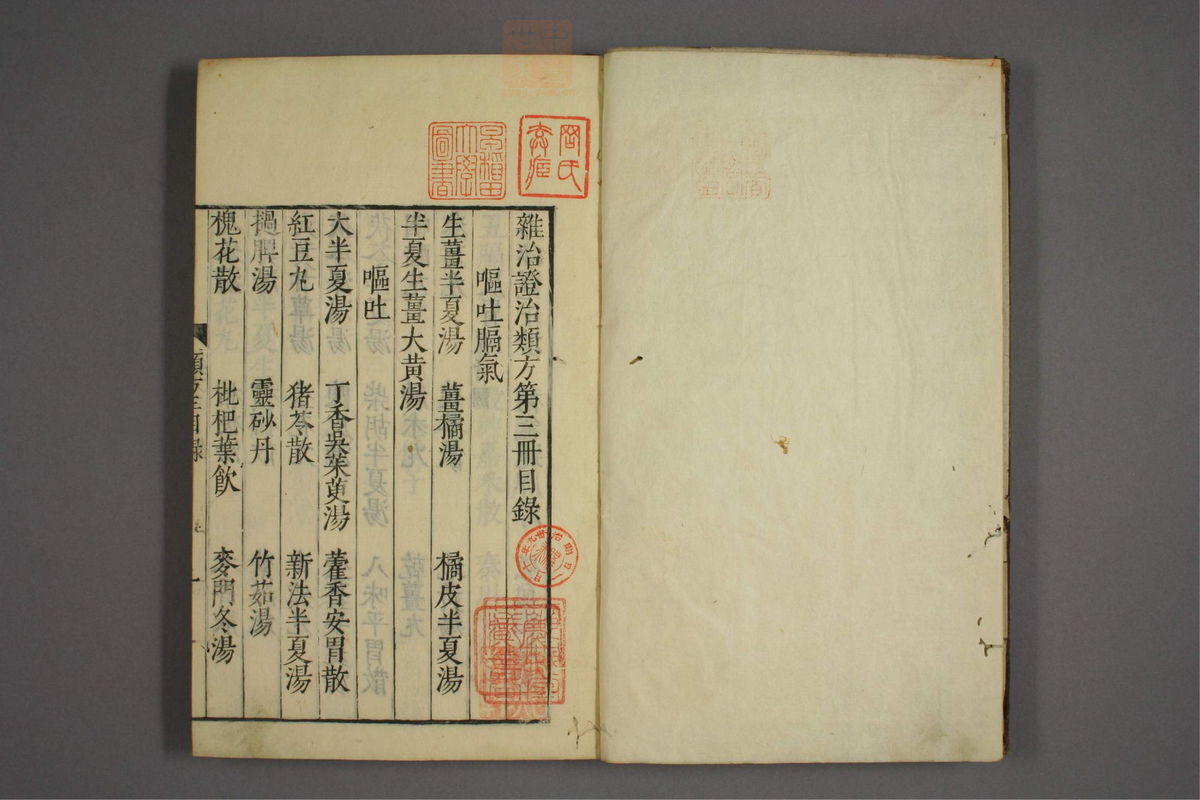 雜治證治類方第三冊目錄
嘔吐膈氣
生薑半夏湯　薑橘湯　橘皮半夏湯
半夏生薑大黃湯
嘔吐
大半夏湯　丁香吳茱萸湯　藿香安胃散
紅豆丸　猪苓散　新法半夏湯
撾脾湯　靈砂丹　竹茹湯
槐花散　枇杷葉飲　麥門冬湯
類方三目錄
早稲田大學圖書